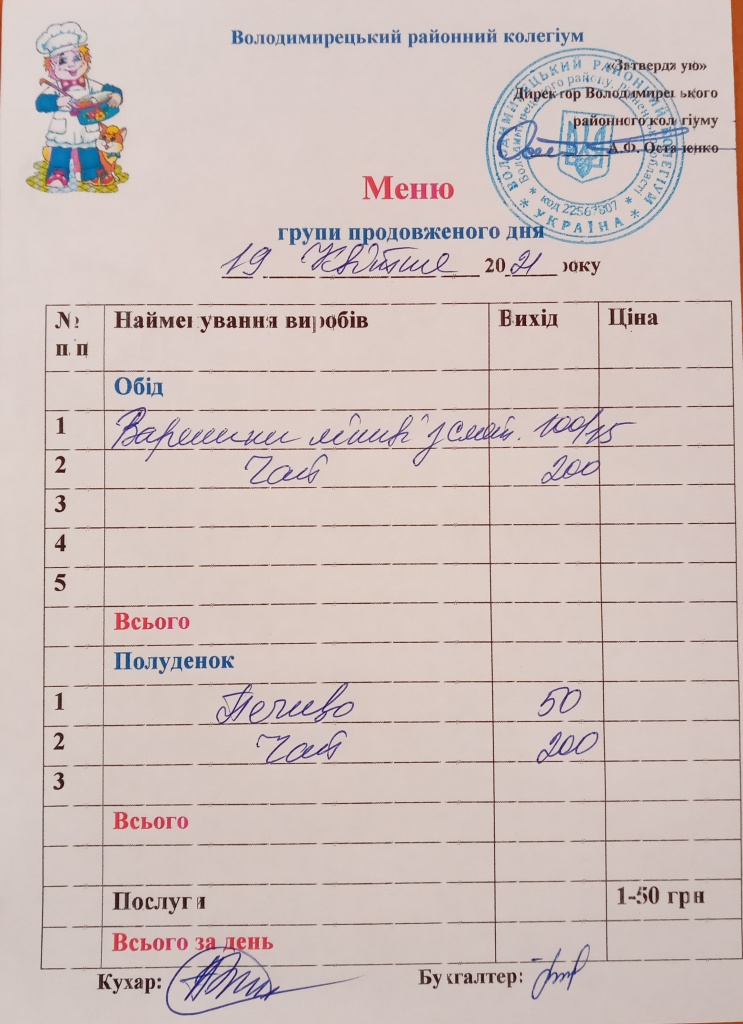 Володимирецький районний колегіум
«Затверджую»
Директор Володимирецького
районного колегіуму
А.Ф. Остапенко
ВОЛОДИМИРЕЦЬКИЙ РАЙОННИЙ КОЛЕГІУМ
* УКРАЇНА *
Меню
групи продовженого дня
19 квітня 2021 року
№ п/п Найменування виробів Вихід Ціна
Обід
1 Вареники ліниві з смет. 100/15
2 Чай 200
3
4
5
Всього
Полуденок
1 Печиво 50
2 Чай 200
3
Всього
Послуги 1-50 грн
Всього за день
Кухар: Бухгалтер: